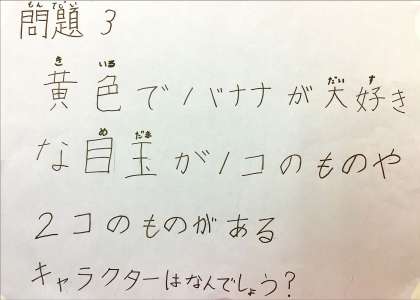 問題 3
黄色でバナナが大好き
な目玉が1コのものや
2コのものがある
キャラクターはなんでしょう?